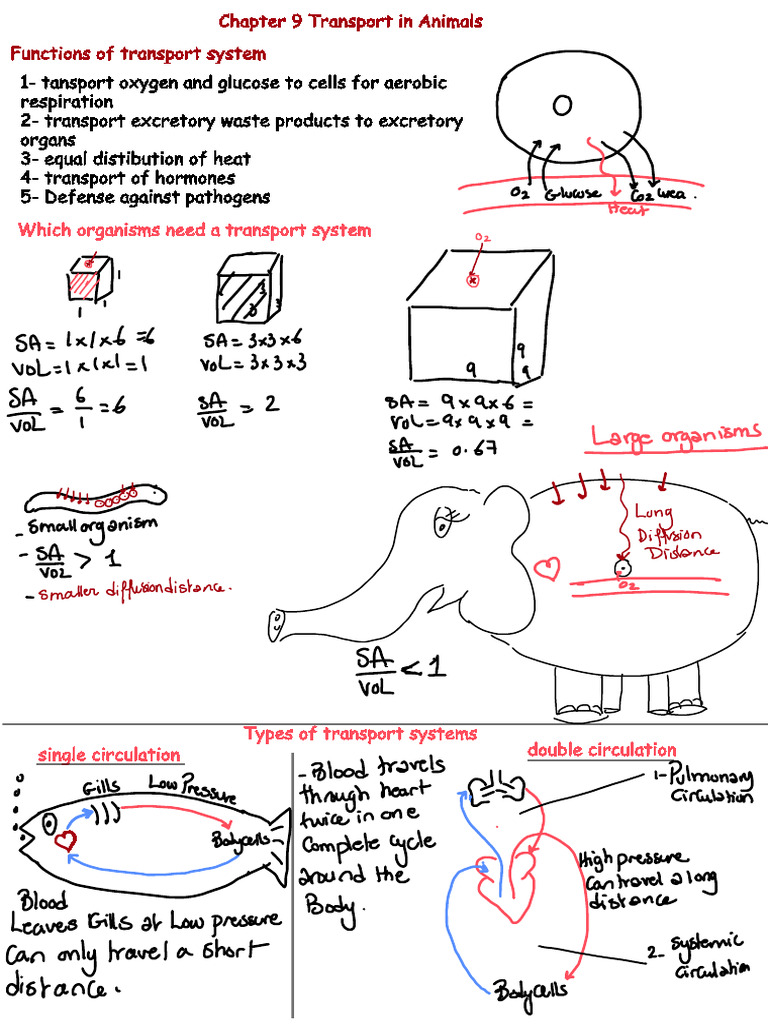 Chapter 9 Transport in Animals
Functions of transport system
1- tansport oxygen and glucose to cells for aerobic
respiration
2- transport excretory waste products to excretory
organs
3- equal distibution of heat
4- transport of hormones
5- Defense against pathogens
O2 Glucose CO2 urea.
Heat
Which organisms need a transport system
O2
1
1 1
3
3 3
9
9 9
SA = 1x1x6 = 6
VOL = 1x1x1 = 1
SA/VOL = 6/1 = 6
SA = 3x3x6
VOL = 3x3x3
SA/VOL = 2
SA = 9x9x6 =
VOL = 9x9x9 =
SA/VOL = 0.67
Large organisms
- Small organism
- SA/VOL > 1
- smaller diffusion distance.
Long
Diffusion
Distance
O2
SA/VOL < 1
Types of transport systems
single circulation
Gills Low Pressure
Body cells
Blood
Leaves Gills at Low pressure
Can only travel a short
distance.
double circulation
- Blood travels
through heart
twice in one
Complete cycle
around the
Body.
1- Pulmonary
Circulation
High pressure
Can travel a long
distance
2- Systemic
Circulation
Body cells